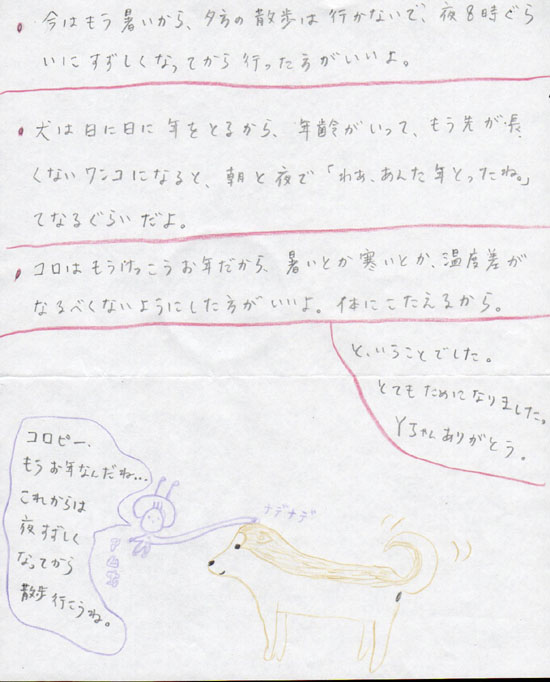 • 今はもう暑いから、夕方の散歩は行かないで、夜8時ぐら
いにすずしくなってから行った方がいいよ。
• 犬は日に日に年をとるから、年齢がいって、もう先が長
くないワンコになると、朝と夜で「わあ、あんた年とったね。」
てなるぐらいだよ。
• コロはもうけっこうお年だから、暑いとか寒いとか、温度差が
なるべくないようにした方がいいよ。体にこたえるから。
と、いうことでした。
とてもためになりました。
Yちゃんありがとう。
コロピー、
もうお年なんだね…
これからは
夜すずしく
なってから
散歩行こうね。
ナデナデ